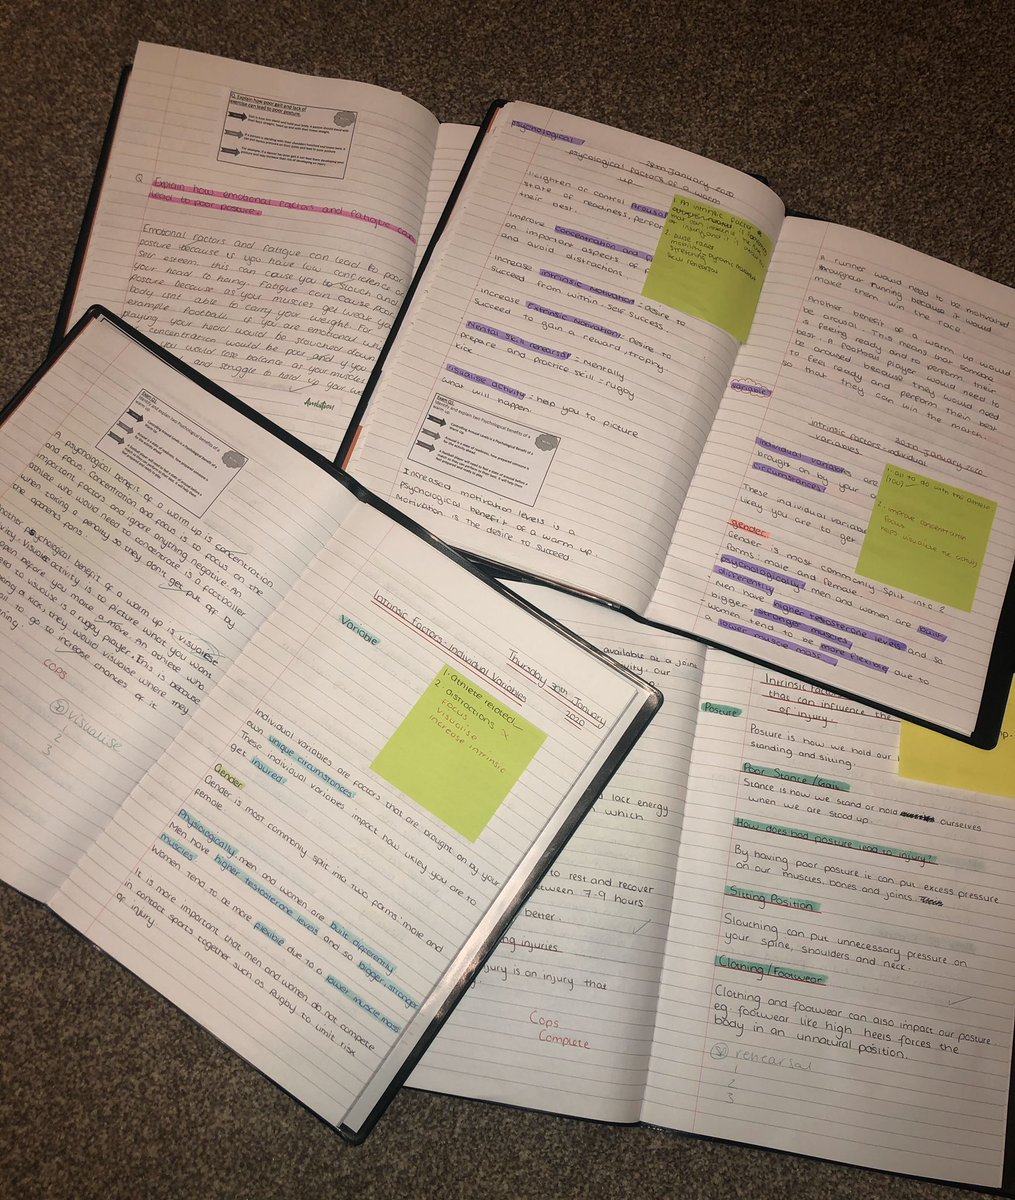 Q. Explain how poor gait and lack of
exercise can lead to poor posture.
Q Explain how emotional factors and fatigue can
lead to poor posture.
Emotional factors and Fatigue can lead to poor
posture because if you have low confidence or
self esteem, this can cause you to slouch and
your head to hang. Fatigue can cause poor
posture because as your muscles get weak your
body isnt able to carry your weight. For
example football if you are emotional whilst
playing your head would be slouched down
concentration would be poor and if you
you lose balance as your muscles
and struggle to hold up your
Ambition
Psychological
28th January 2020
Psycological factors of a warm
up
Heighten or control Arousal
state of readiness, perform
their best.
Improve concentration and
on important aspects of
and avoid distractions.
Increase intrinsic motivation = desire to
succeed from within, self success.
Increase Extrinsic motivation = desire to
succeed to gain a reward, trophy.
Mental skill rehearsal = mentally
prepare and practise skill = rugby
kick
visualise activity = help you to picture
what will happen.
Exam Q1.
Identify and explain two Psychological benefits of a
warm up.
Increased motivation levels is a
psychological benefit of a warm up.
Motivation is the desire to succeed
2. pulse raiser
stretching
skill rehearsal
A runner would need to be motivated
throughout running because it would
make them win the race.
Another benefit of a warm up would
be arousal. This means that someone
is feeling ready and to perform their
best. A football player would need to
be aroused because they would need
to feel ready and perform their best
so that they can win the match.
variable
30th January 2020
Intrinsic factors - individual
variables
Individual variables are
brought on by your
circumstances
These individual variables
likely you are to get
gender
Gender is most commonly split into 2
forms: male and female.
psychologically men and women are built
differently
Men have higher testosterone levels and so
bigger, stronger muscles.
women tend to be more flexible due to
a lower muscle mass
1. all to do with the athlete
(you)
2. improve concentration
focus
helps visualise the activity
Exam Q1.
Identify and explain two Psychological benefits of a
warm up.
A psychological benefit of a warm up is concentration
and focus. Concentration and focus is to focus on the
important factors and ignore anything negative. An
athlete who would need to concentrate is a footballer
when taking a penalty so they don't get put off by
the apparents fans.
Another psychological benefit of a warm up is visualise
activity. Visualise activity is to picture what you want
happen before you make a move. An athlete who
need to visualise is a rugby player. This is because
taking a kick, they would visualise where they
ball to go to increase chances of it
COPS
SP visualise
1
2
3
Variable
Thursday 30th January
2020
Intrinsic Factors - Individual Variables
1. athlete related
2. distractions x
focus
visualise
increase intrinsic
Individual variables are factors that are brought on by your
own unique circumstances.
These individual variables impact how likley you are to
get injured.
Gender
Gender is most commonly split into two forms: male and
female.
Physiologically men and women are built differently
Men have higher testosterone levels and so bigger, stronger
muscles
Women tend to be more flexible due to a lower muscle mass
It is more important that men and women do not compete
in contact sports together such as Rugby to limit risk
of injury.
available at a joint
lack energy
which
to rest and recover
between 7-9 hours
better.
injuries
injury is an injury that
Cops
Complete
Intrinsic factors
that can influence the
of injury.
Posture
Posture is how we hold our
standing and sitting.
Poor Stance/Gait
Stance is how we stand or hold ourselves
when we are stood up.
How does bad posture lead to injury?
By having poor posture it can put excess pressure
on our muscles, bones and joints.
Sitting Position
Slouching can put unnecessary pressure on
your spine, shoulders and neck.
Clothing/Footwear
Clothing and footwear can also impact our posture
eg. footwear like high heels forces the
body in an unnatural position.
SP rehearsal
1
2
3